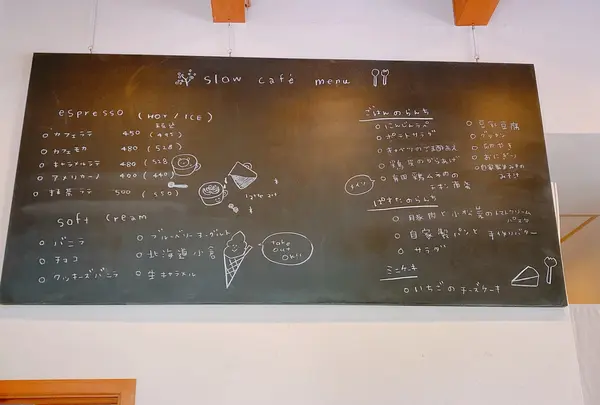 slow café menu
espresso (HOT / ICE)
カフェラテ 450 (495)
カフェモカ 480 (528)
キャラメルラテ 480 (528)
アメリカーノ 400 (440)
抹茶ラテ 500 (550)
soft cream
バニラ
チョコ
クッキーズバニラ
ブルーベリーヨーグルト
北海道小倉
生キャラメル
Take
out
OK!!
ごはんのらんち
にんじんラペ
ポテトサラダ
キャベツのごま酢あえ
メイン
豆乳豆腐
グラタン
卵やき
おにぎり
ぱすたのらんち
自家製パンと手作りバター
サラダ
ミニケーキ
いちごのチーズケーキ